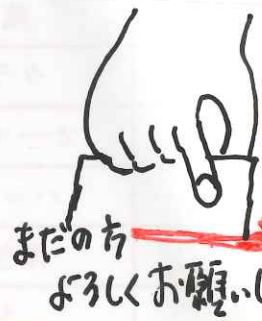 まだの方
よろしくお願いし